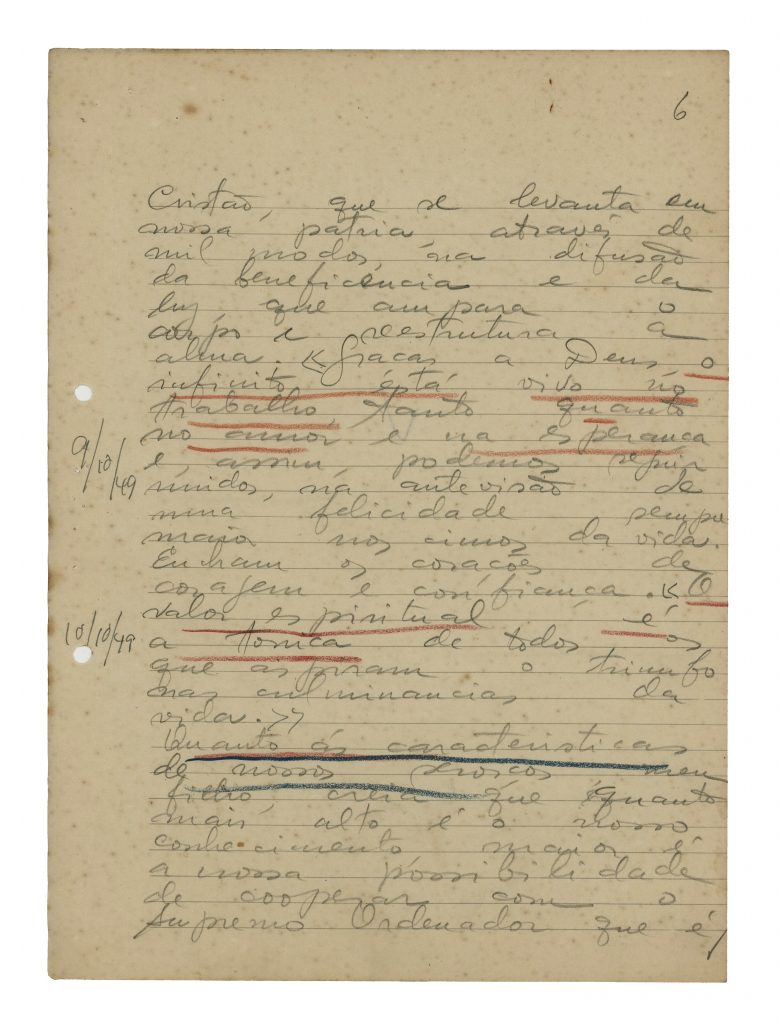 6
Cristão, que se levanta em
nossa pátria através de
mil modos, na difusão
da beneficência e da
luz, que ampara o
corpo e reestrutura a
alma. << Graças a Deus, o
infinito está vivo no
trabalho, tanto quanto
no amor e na esperança
9/10/49
e, assim podemos seguir
unidos, na antevisão de
uma felicidade sempre
maior nos cimos da vida.
Encham os corações de
coragem e confiança. << O
valor espiritual é
10/10/49
a tonica de todos os
que aspiram o triunfo
nas culminancias da
vida. >>
Quanto ás caracteristicas
de nossos meu
filho, creia que quanto
mais alto é o nosso
conhecimento maior é
a nossa possibilidade
de cooperar com o
Supremo Ordenador que é,